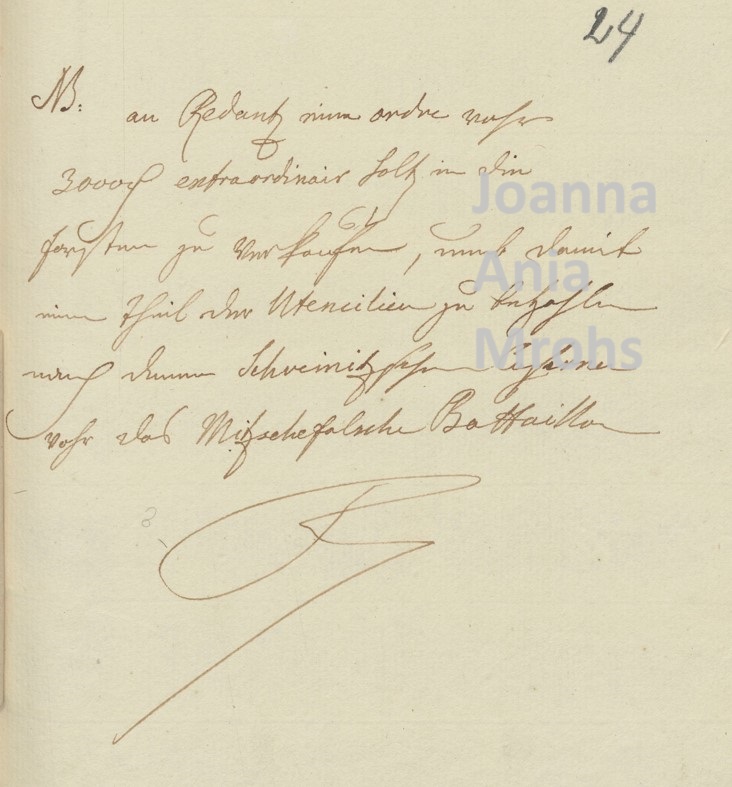 24
NB: an Redantz einen ordre vohr
3000 extraordinair Holtz in die
forsten zu verkaufen, umb damit
einen theil der Utencilien zu bezahlen
nach denen Schweinitzschen
vohr das Mitschefalsche Battaillon
Joanna
Anja
Mrohs